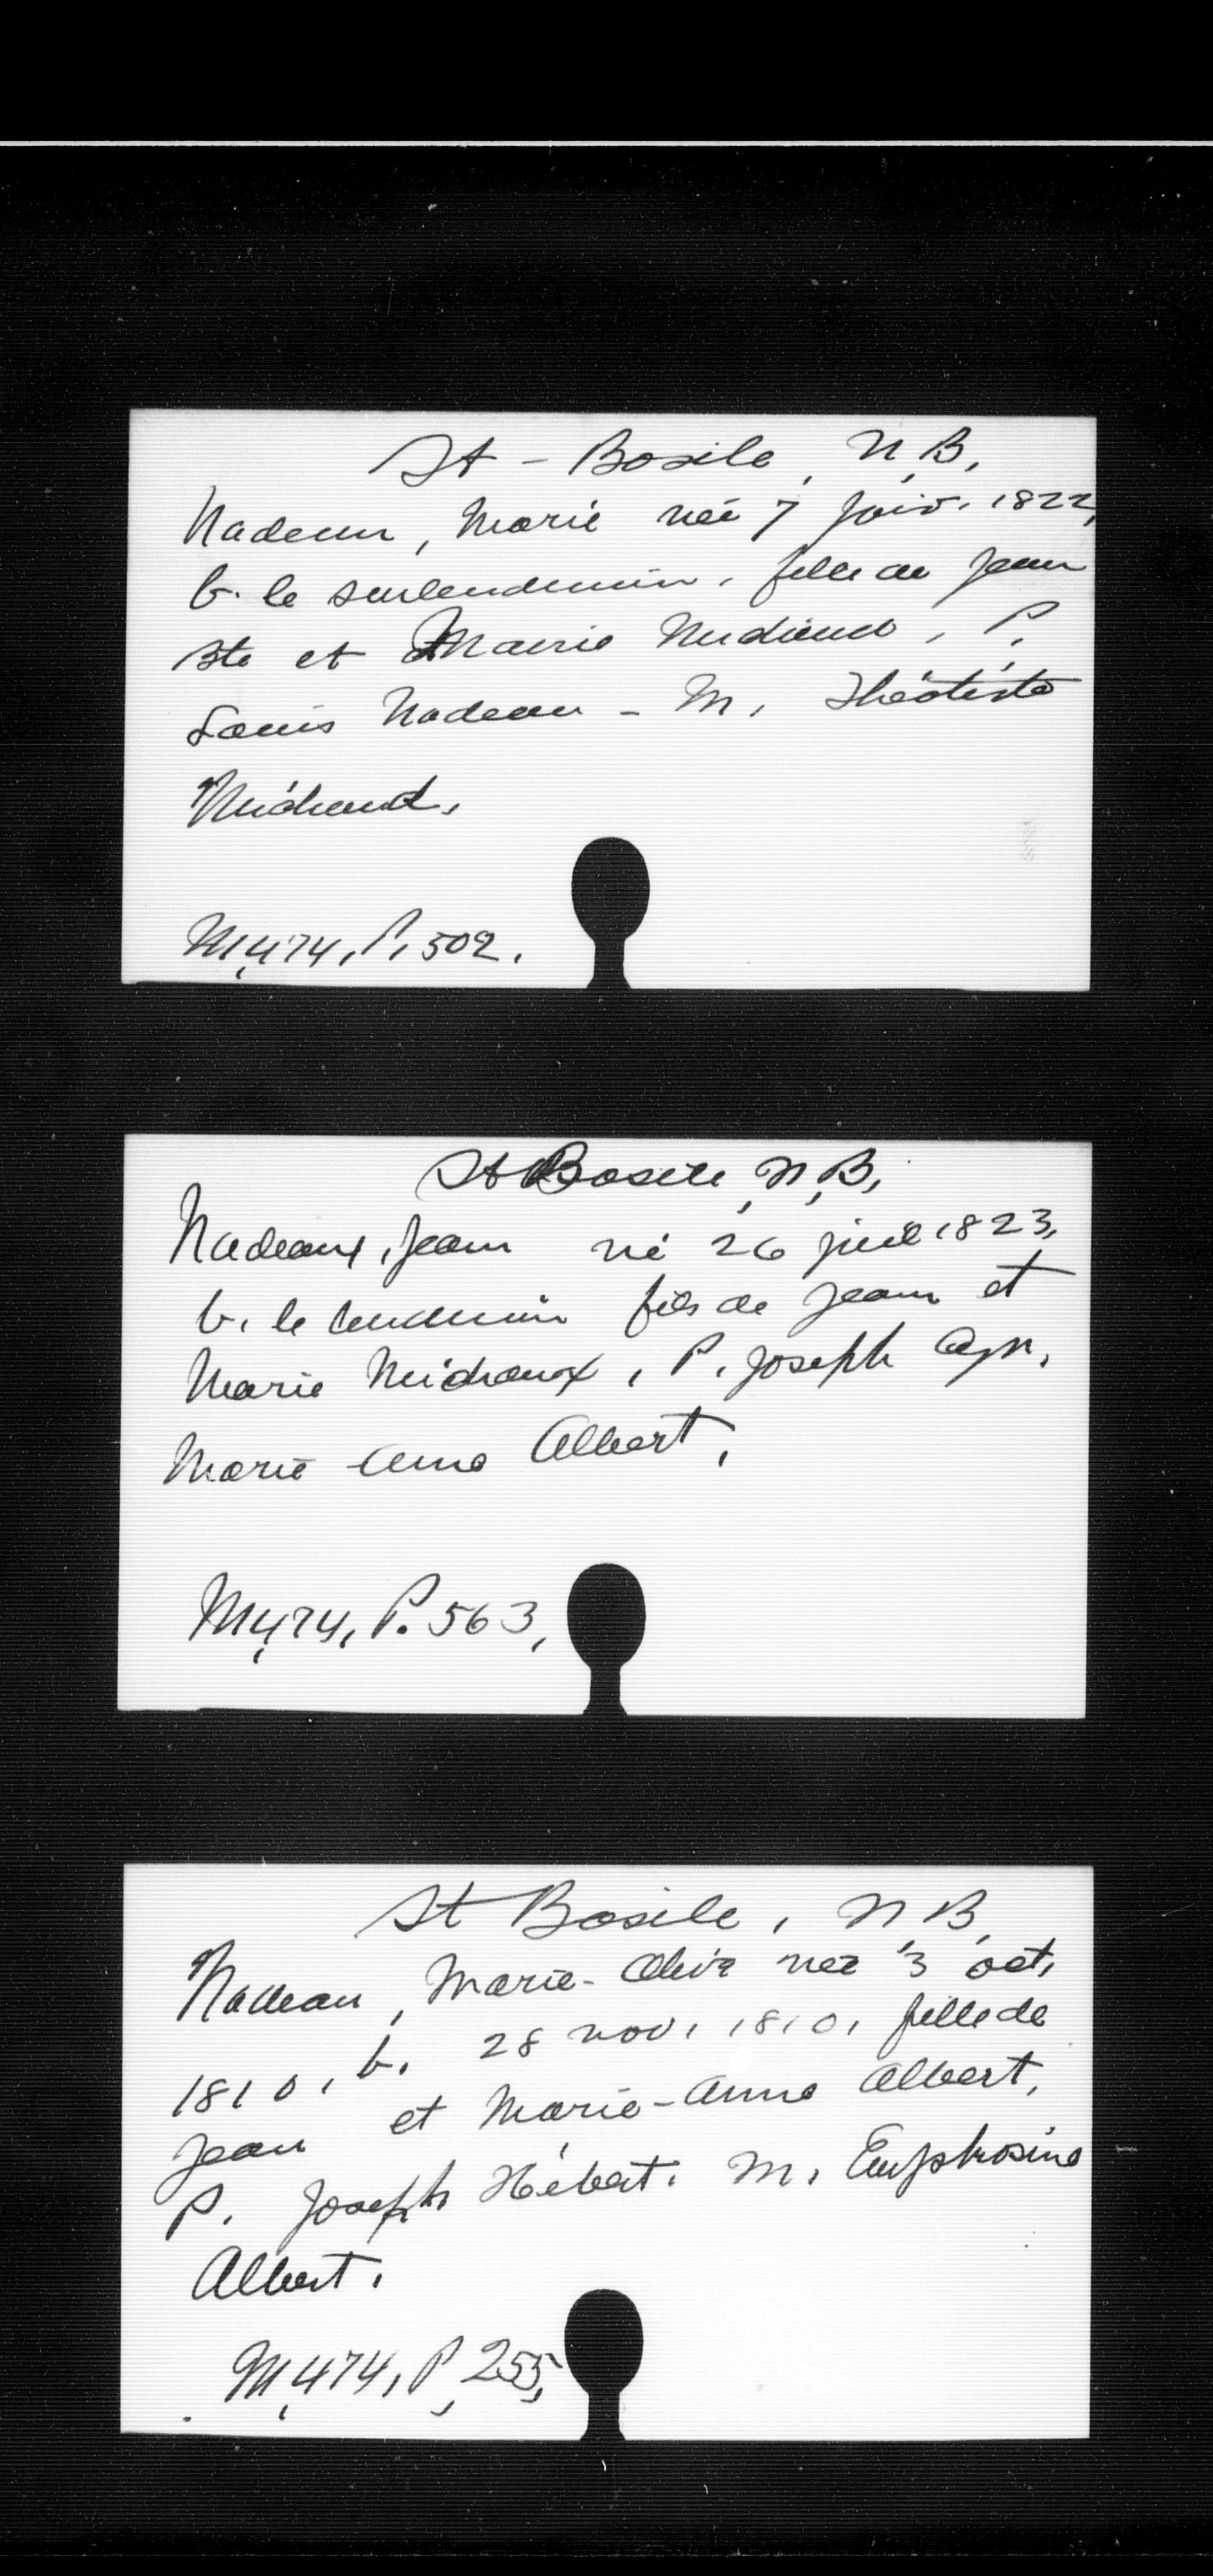 St - Basile, N.B.
Nadeau, Marie née 7 janv. 1822,
b. le surlendemain, fille de Jean
Bte et Marie Michaud, P.
Louis Nadeau - M. Théotiste
Michaud.
M.474, P. 502.
St Basile, N.B.
Nadeaux, Jean né 26 juil 1823,
b. le lendemain fils de Jean et
Marie Michaux, P. Joseph
Marie Anne Albert.
M.474, P. 563.
St Basile, N.B.
Nadeau, Marie- née 3 oct.
1810, b. 28 nov. 1810, fille de
Jean et Marie-Anne Albert,
P. Joseph Hébert. M. Euphrosine
Albert.
M.474, P. 255.